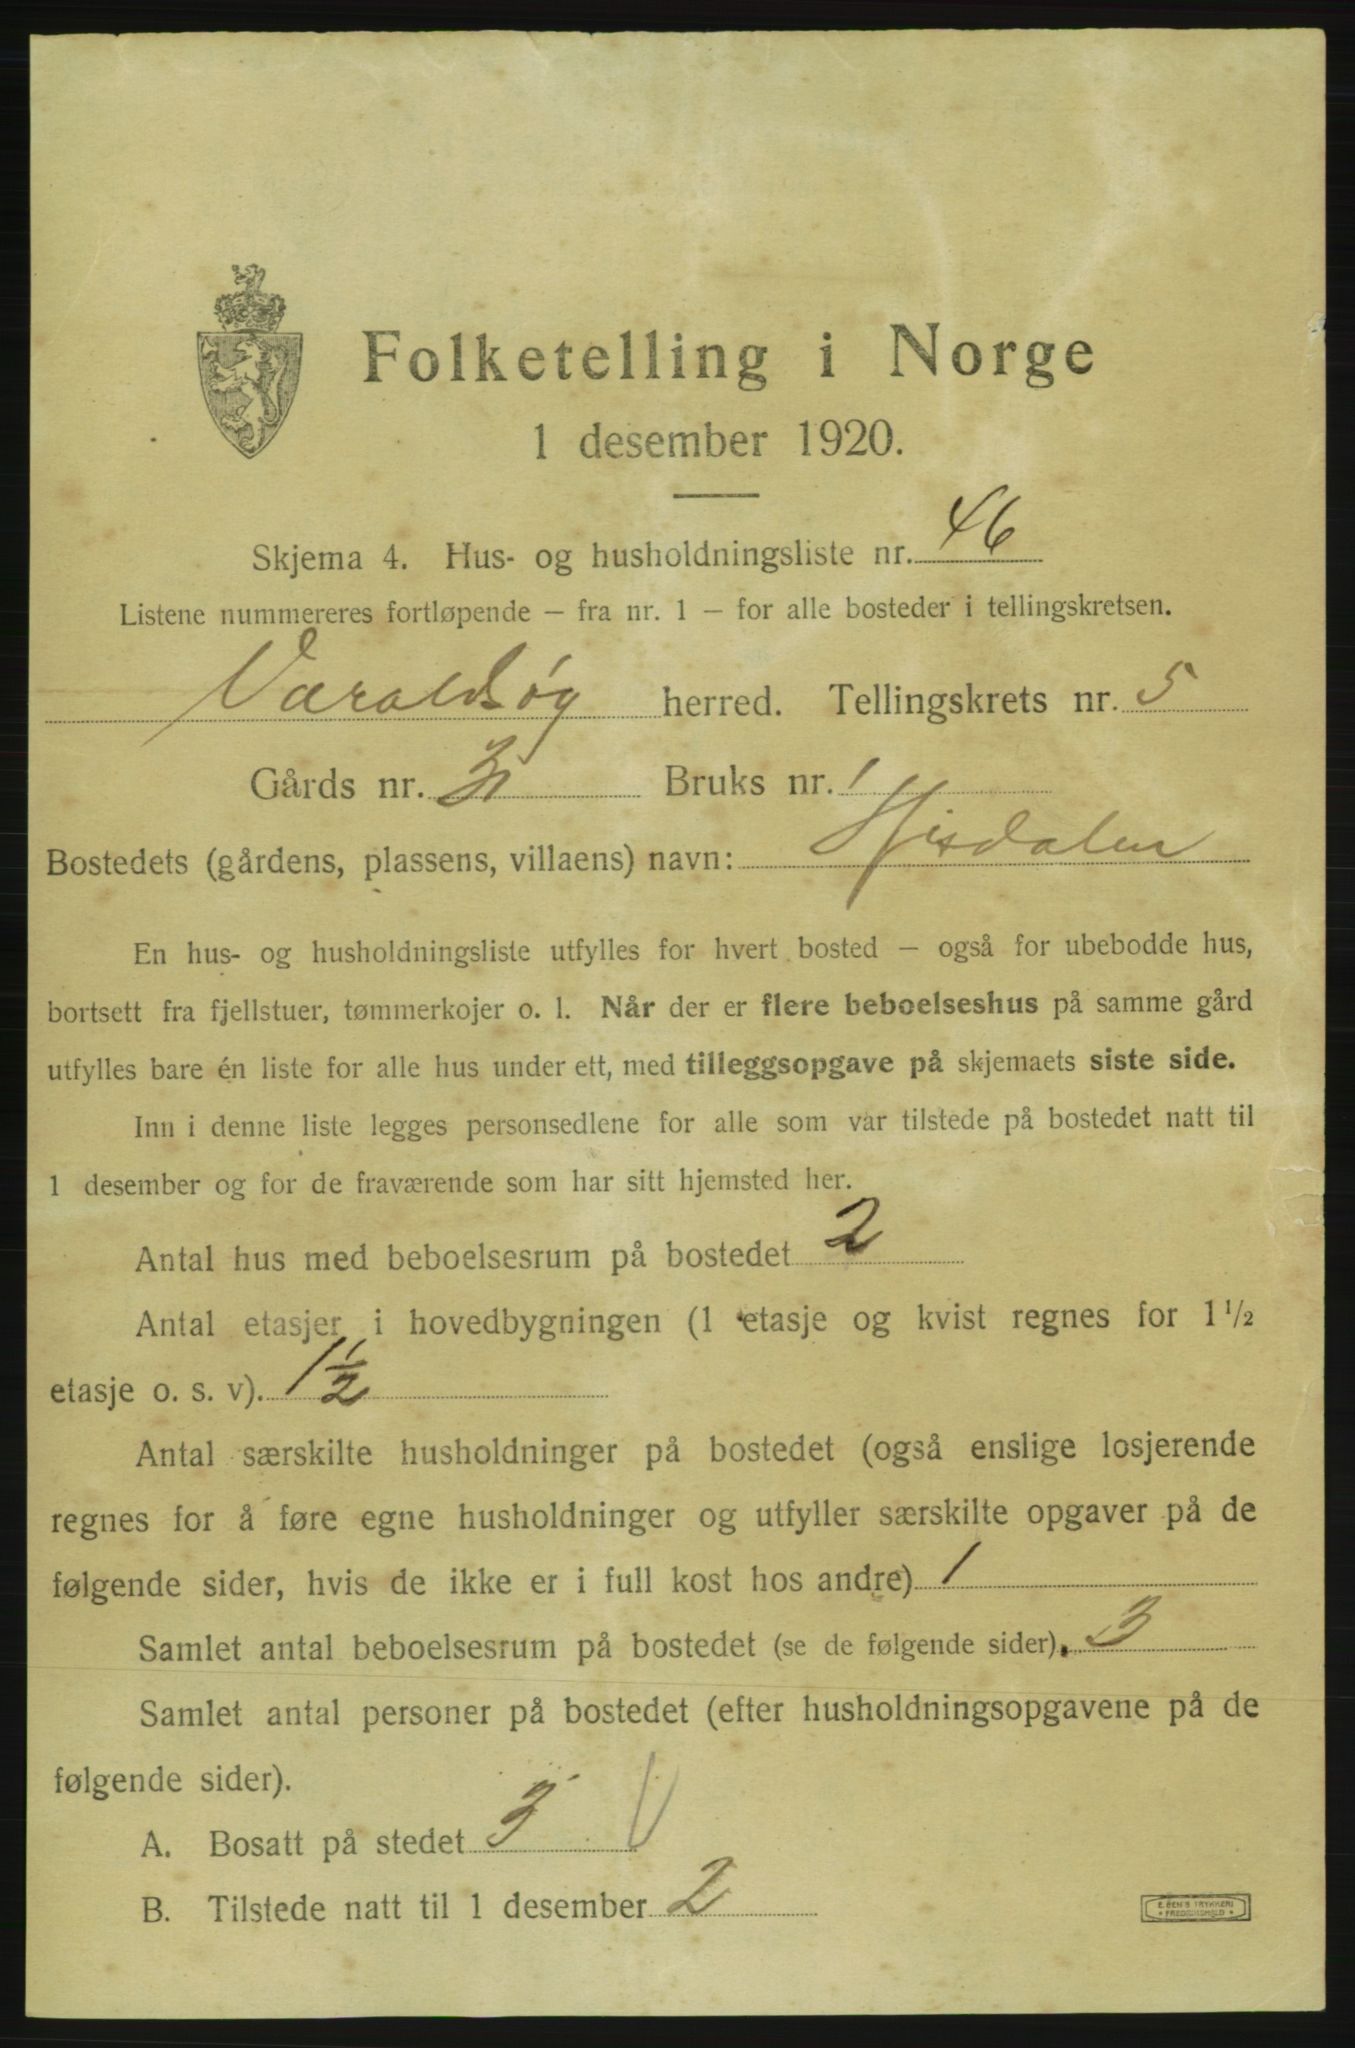 Folketelling i Norge
1 desember 1920.
Skjema 4. Hus- og husholdningsliste nr. 46
Listene nummereres fortløpende – fra nr. 1 – for alle bosteder i tellingskretsen.
Varaldsøy herred. Tellingskrets nr. 5
Gårds nr. 31 Bruks nr. 1
Bostedets (gårdens, plassens, villaens) navn: Hisdalen
En hus- og husholdningsliste utfylles for hvert bosted – også for ubebodde hus,
bortsett fra fjellstuer, tømmerkojer o. l. Når der er flere beboelseshus på samme gård
utfylles bare én liste for alle hus under ett, med tilleggsopgave på skjemaets siste side.
Inn i denne liste legges personsedlene for alle som var tilstede på bostedet natt til
1 desember og for de fraværende som har sitt hjemsted her.
Antal hus med beboelsesrum på bostedet 2
Antal etasjer i hovedbygningen (1 etasje og kvist regnes for 1 1/2
etasje o. s. v). 1 1/2
Antal særskilte husholdninger på bostedet (også enslige losjerende
regnes for å føre egne husholdninger og utfyller særskilte opgaver på de
følgende sider, hvis de ikke er i full kost hos andre) 1
Samlet antal beboelsesrum på bostedet (se de følgende sider). 3
Samlet antal personer på bostedet (efter husholdningsopgavene på de
følgende sider).
A. Bosatt på stedet 3
B. Tilstede natt til 1 desember 2